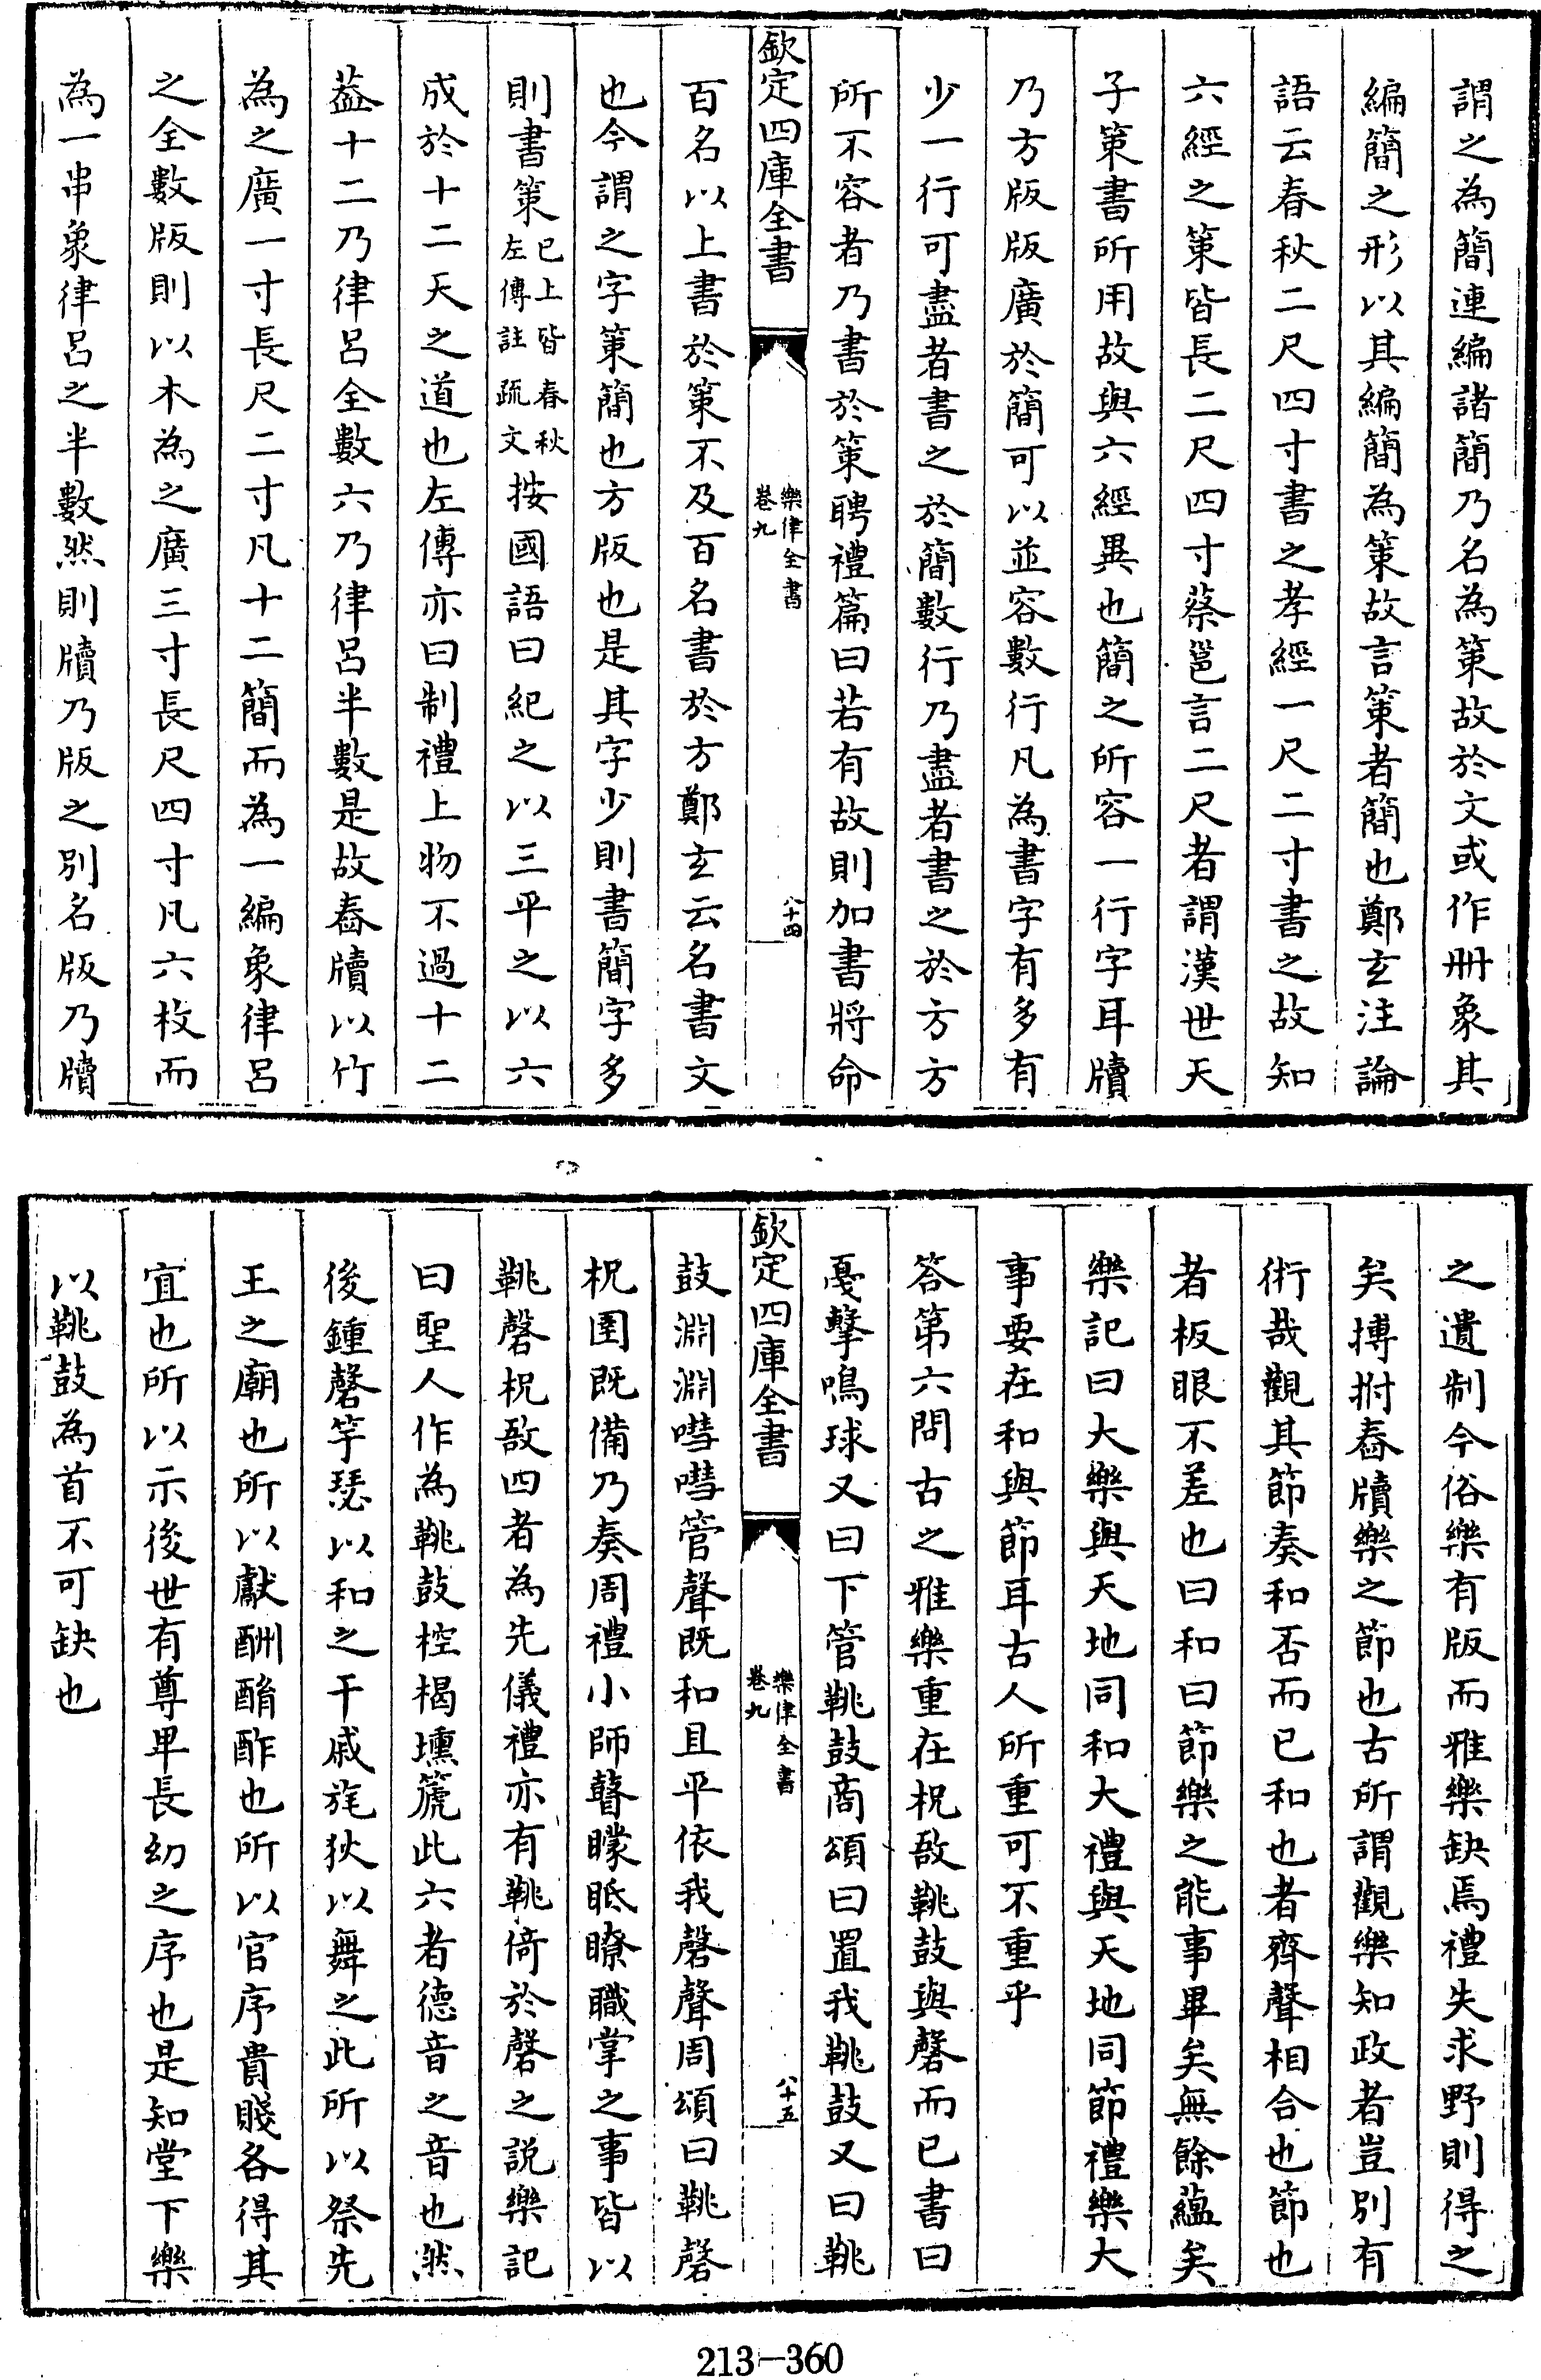 謂之為簡連編諸簡乃名為策故於文或作冊象其
編簡之形以其編簡為策故言策者簡也鄭玄注論
語云春秋二尺四寸書之孝經一尺二寸書之故知
六經之策皆長二尺四寸蔡邕言二尺者謂漢世天
子策書所用故與六經異也簡之所容一行字耳牘
乃方版版廣於簡可以並容數行凡為書字有多有
少一行可盡者書之於簡數行乃盡者書之於方方
所不容者乃書於策聘禮篇曰若有故則加書將命
欽定四庫全書
樂律全書
卷九
八十四
百名以上書於策不及百名書於方鄭玄云名書文
也今謂之字策簡也方版也是其字少則書簡字多
則書策已上皆春秋左傳註疏文按國語曰紀之以三平之以六
成於十二天之道也左傳亦曰制禮上物不過十二
葢十二乃律呂全數六乃律呂半數是故舂牘以竹
為之廣一寸長尺二寸凡十二簡而為一編象律呂
之全數版則以木為之廣三寸長尺四寸凡六枚而
為一串象律呂之半數然則牘乃版之別名版乃牘
之遺制今俗樂有版而雅樂缺焉禮失求野則得之
矣搏拊舂牘樂之節也古所謂觀樂知政者豈別有
術哉觀其節奏和否而已和也者齊聲相合也節也
者板眼不差也曰和曰節樂之能事畢矣無餘蘊矣
樂記曰大樂與天地同和大禮與天地同節禮樂大
事要在和與節耳古人所重可不重乎
答第六問古之雅樂重在柷敔鞉鼓與磬而已書曰
戛擊鳴球又曰下管鞉鼓商頌曰置我鞉鼓又曰鞉
欽定四庫全書
樂律全書
卷九
八十五
鼓淵淵嘒嘒管聲既和且平依我磬聲周頌曰鞉磬
柷圉既備乃奏周禮小師瞽矇眡瞭職掌之事皆以
鞉磬柷敔四者為先儀禮亦有鞉倚於磬之説樂記
曰聖人作為鞉鼓椌楬壎篪此六者德音之音也然
後鍾磬竽瑟以和之干戚旄狄以舞之此所以祭先
王之廟也所以獻酬酳酢也所以官序貴賤各得其
宜也所以示後世有尊卑長幼之序也是知堂下樂
以鞉鼓為首不可缺也
213-360